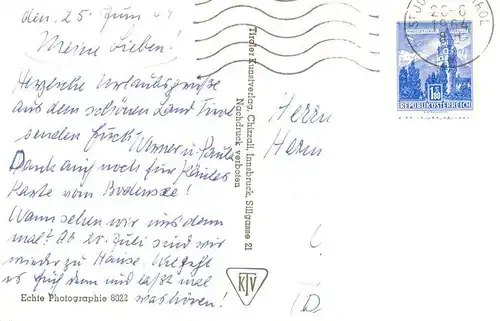 den, 25. Juni 64
Meine Lieben!
Herzliche Urlaubsgrüße
aus dem schönen Land Tirol
senden Euch Werner u. Paula
Dank auch noch für
Karte vom Bodensee!
Wann sehen wir uns denn
mal? Ab 20. Juli sind wir
wieder zu Hause. Wie geht
es Euch denn und laßt mal
was hören!
Echte Photographie 8022
Tiroler Kunstverlag, Chizzali, Innsbruck, Sillgasse 21
Nachdruck verboten
KTV
Herrn
Herm
(D
ST JO
TIROL
1964
1.80
REPUBLIK ÖSTERREICH